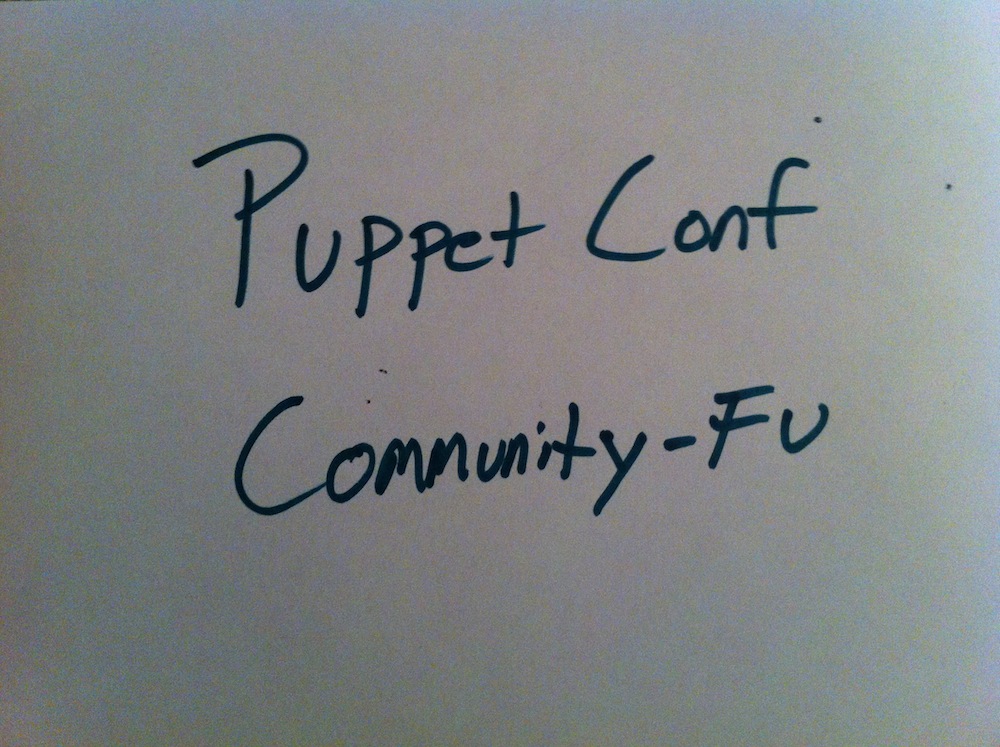 Puppet Conf
Community-Fu